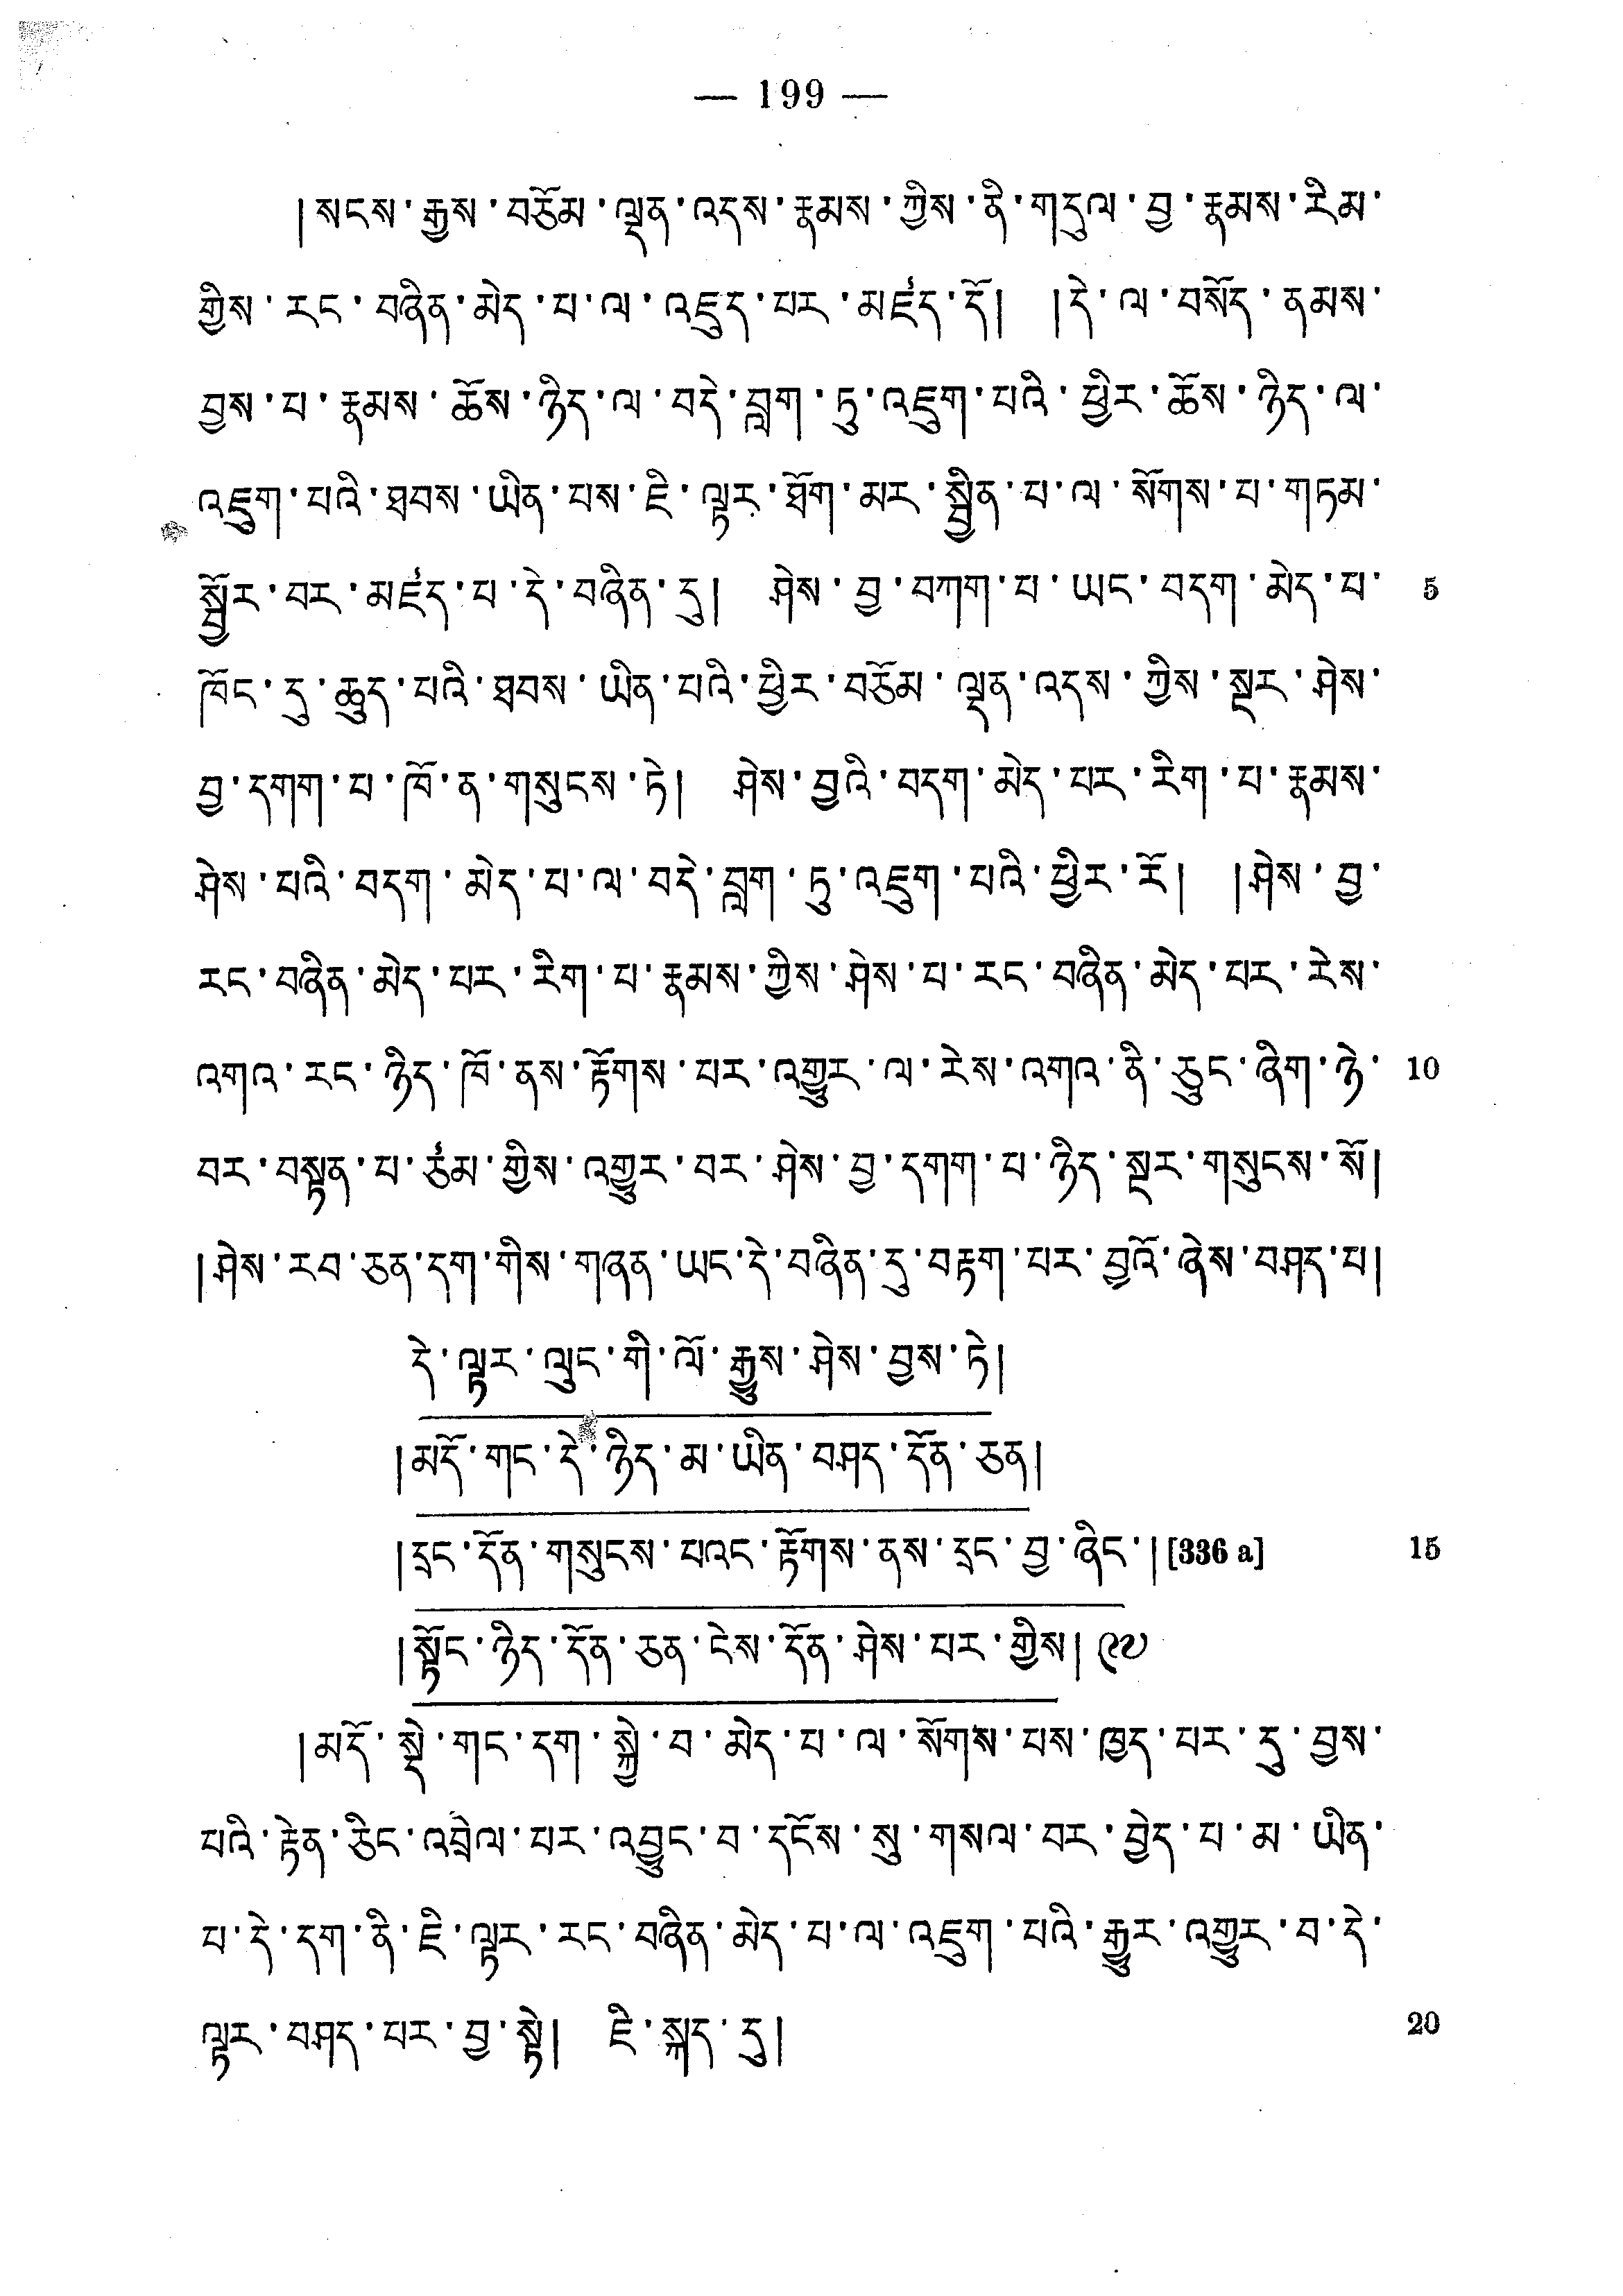 — 199 —
།སངས་རྒྱས་བཅོམ་ལྡན་འདས་རྣམས་ཀྱིས་ནི་གདུལ་བྱ་རྣམས་རིམ་
གྱིས་རང་བཞིན་མེད་པ་ལ་འཇུད་པར་མཛད་དོ། །དེ་ལ་བསོད་ནམས་
བྱས་པ་རྣམས་ཆོས་ཉིད་ལ་བདེ་བླག་ཏུ་འཇུག་པའི་ཕྱིར་ཆོས་ཉིད་ལ་
འཇུག་པའི་ཐབས་ཡིན་པས་ཇི་ལྟར་ཐོག་མར་སྦྱིན་པ་ལ་སོགས་པ་གཏམ་
སྦྱོར་བར་མཛད་པ་དེ་བཞིན་དུ། ཤེས་བྱ་བཀག་པ་ཡང་བདག་མེད་པ་ 5
ཁོང་དུ་ཆུད་པའི་ཐབས་ཡིན་པའི་ཕྱིར་བཅོམ་ལྡན་འདས་ཀྱིས་སྔར་ཤེས་
བྱ་དགག་པ་ཁོ་ན་གསུངས་ཏེ། ཤེས་བྱའི་བདག་མེད་པར་རིག་པ་རྣམས་
ཤེས་པའི་བདག་མེད་པ་ལ་བདེ་བླག་ཏུ་འཇུག་པའི་ཕྱིར་རོ། །ཤེས་བྱ་
རང་བཞིན་མེད་པར་རིག་པ་རྣམས་ཀྱིས་ཤེས་པ་རང་བཞིན་མེད་པར་རེས་
འགའ་རང་ཉིད་ཁོ་ནས་རྟོགས་པར་འགྱུར་ལ་རེས་འགའ་ནི་ཅུང་ཞིག་ཉེ་ 10
བར་བསྟན་པ་ཙམ་གྱིས་འགྱུར་བར་ཤེས་བྱ་དགག་པ་ཉིད་སྔར་གསུངས་སོ།
།ཤེས་རབ་ཅན་དག་གིས་གཞན་ཡང་དེ་བཞིན་དུ་བརྟག་པར་བྱའོ་ཞེས་བཤད་པ།
དེ་ལྟར་ལུང་གི་ལོ་རྒྱུས་ཤེས་བྱས་ཏེ།
།མདོ་གང་དེ་ཉིད་མ་ཡིན་བཤད་དོན་ཅན།
།དྲང་དོན་གསུངས་པའང་རྟོགས་ནས་དྲང་བྱ་ཞིང་། [336 a] 15
།སྟོང་ཉིད་དོན་ཅན་ངེས་དོན་ཤེས་པར་གྱིས། ༩༧
།མདོ་སྡེ་གང་དག་སྐྱེ་བ་མེད་པ་ལ་སོགས་པས་ཁྱད་པར་དུ་བྱས་
པའི་རྟེན་ཅིང་འབྲེལ་པར་འབྱུང་བ་དངོས་སུ་གསལ་བར་བྱེད་པ་མ་ཡིན་
པ་དེ་དག་ནི་ཇི་ལྟར་རང་བཞིན་མེད་པ་ལ་འཇུག་པའི་རྒྱུར་འགྱུར་བ་དེ་
ལྟར་བཤད་པར་བྱ་སྟེ། ཇི་སྐད་དུ། 20